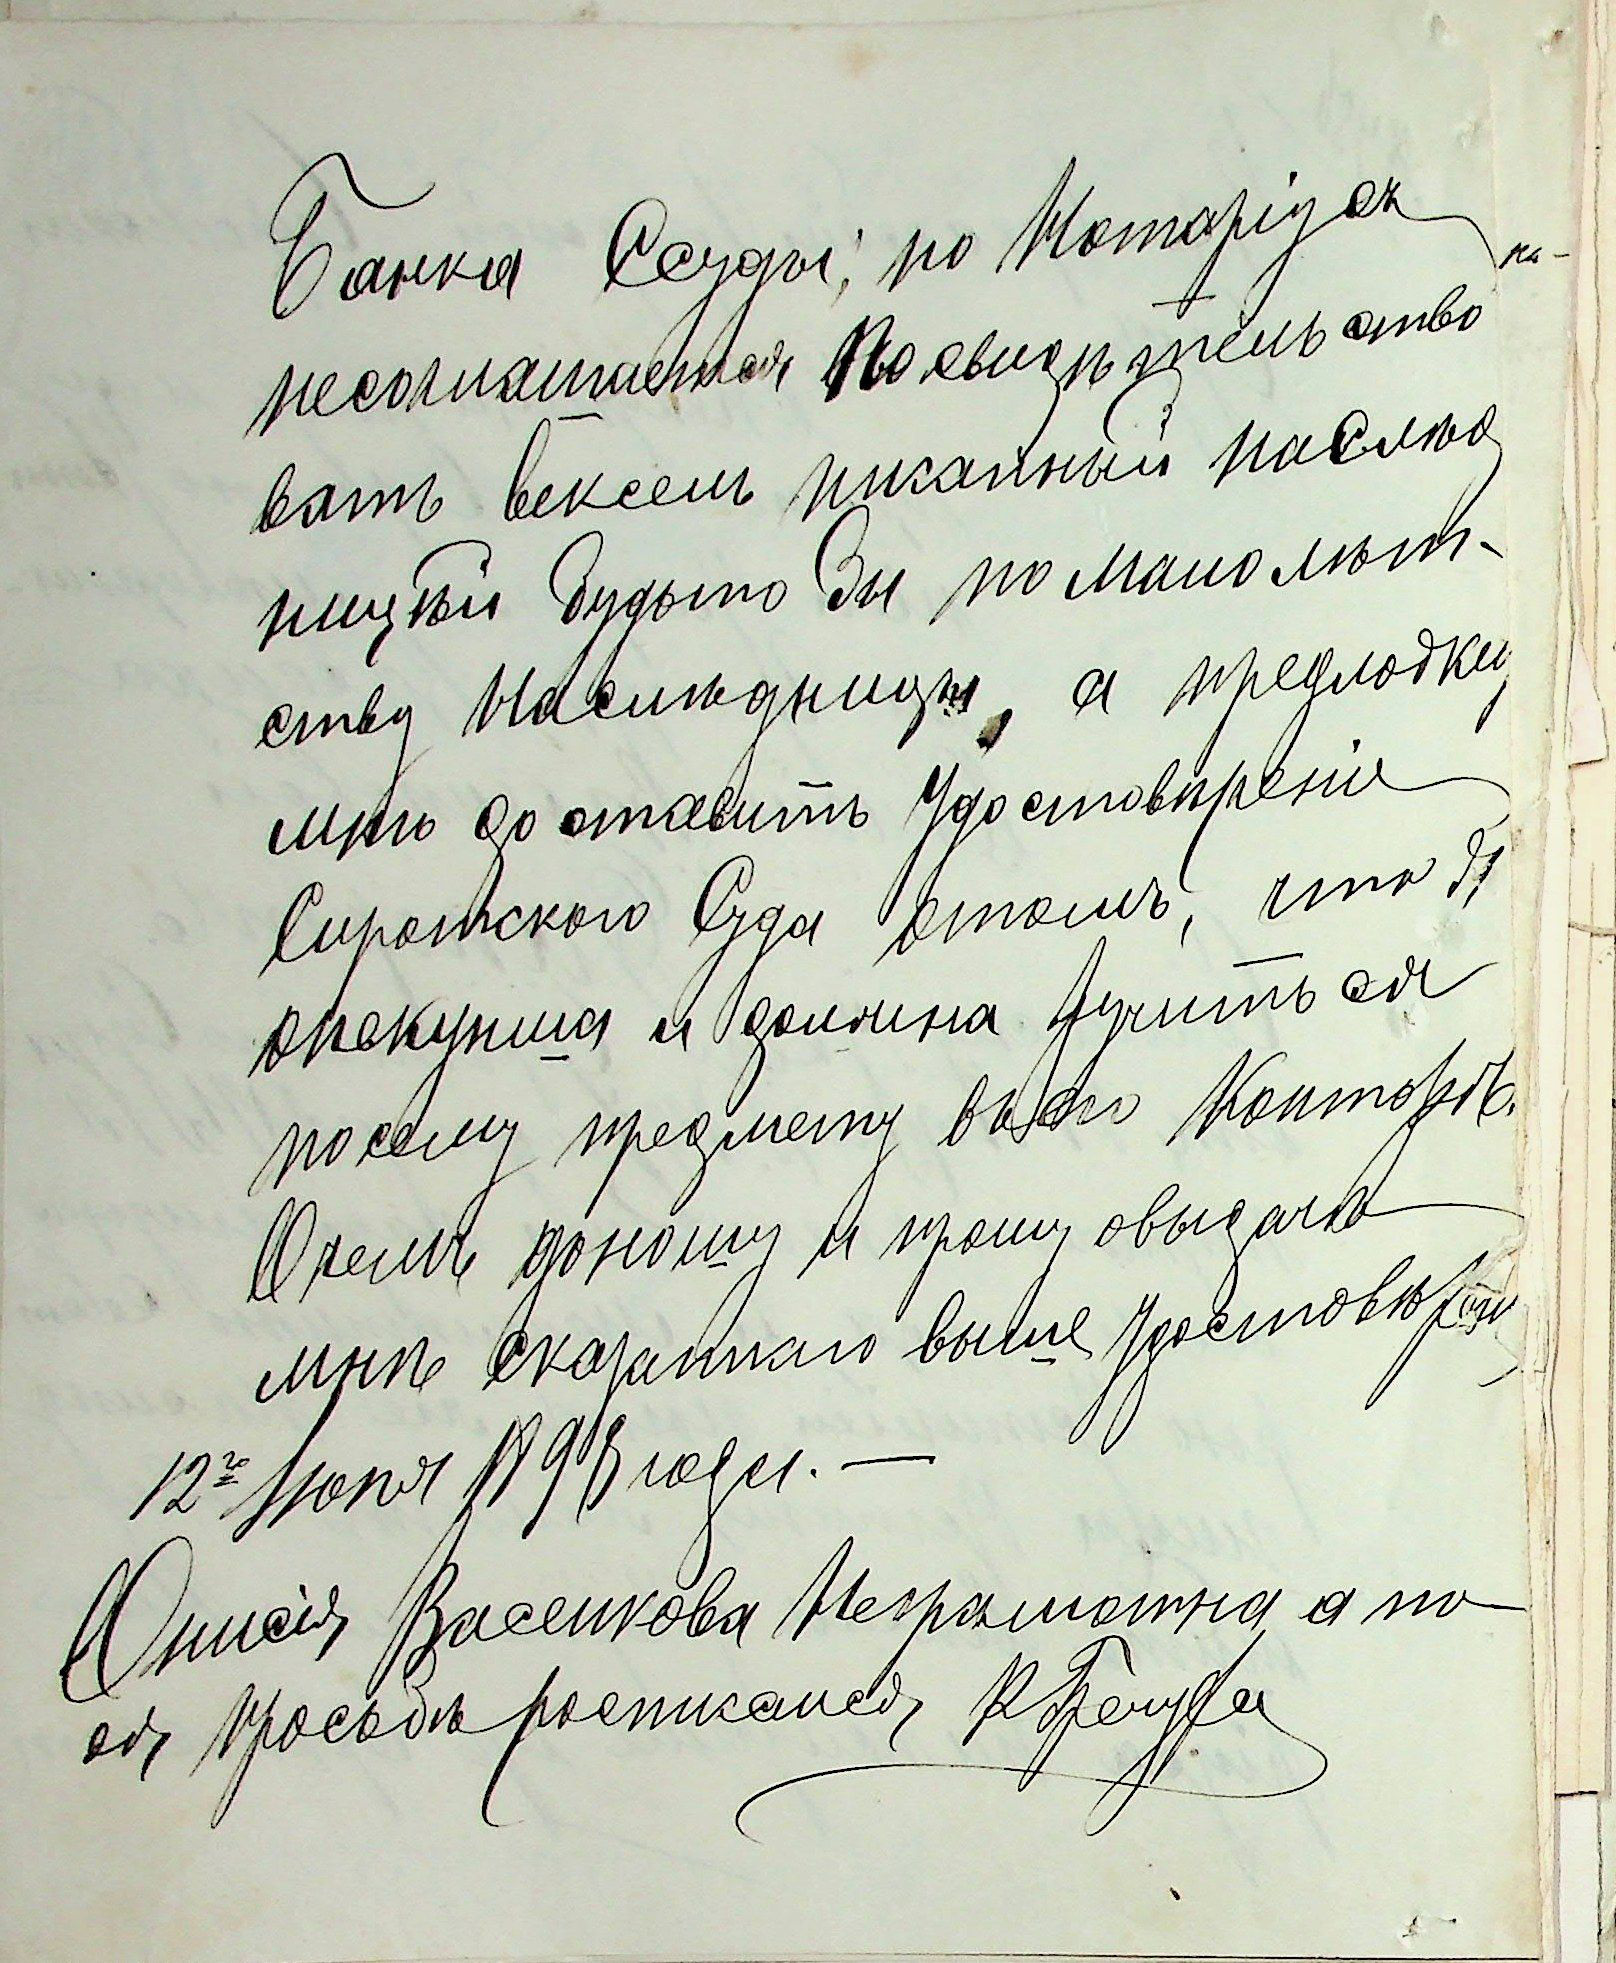 Банка Ссуды, но Нотаріусъ на-
несоглашается Посвидѣтельство
вать вексель писанный наслѣд
ницѣй будьто бы по малолѣт-
ству Наслѣдницы, а предложи
мнѣ доставить Удостовѣреніе
Сиротскаго Суда отомъ, что я
опекунша и должна учиться
посему предмету въ его Конторѣ.
О чемъ доношу и прошу овыдачѣ
мнѣ сказаннаго выше удостовѣрен
12го Іюня 1898 года. —
Онисія Васенкова Неграмотна, а по
ея просьбѣ росписался